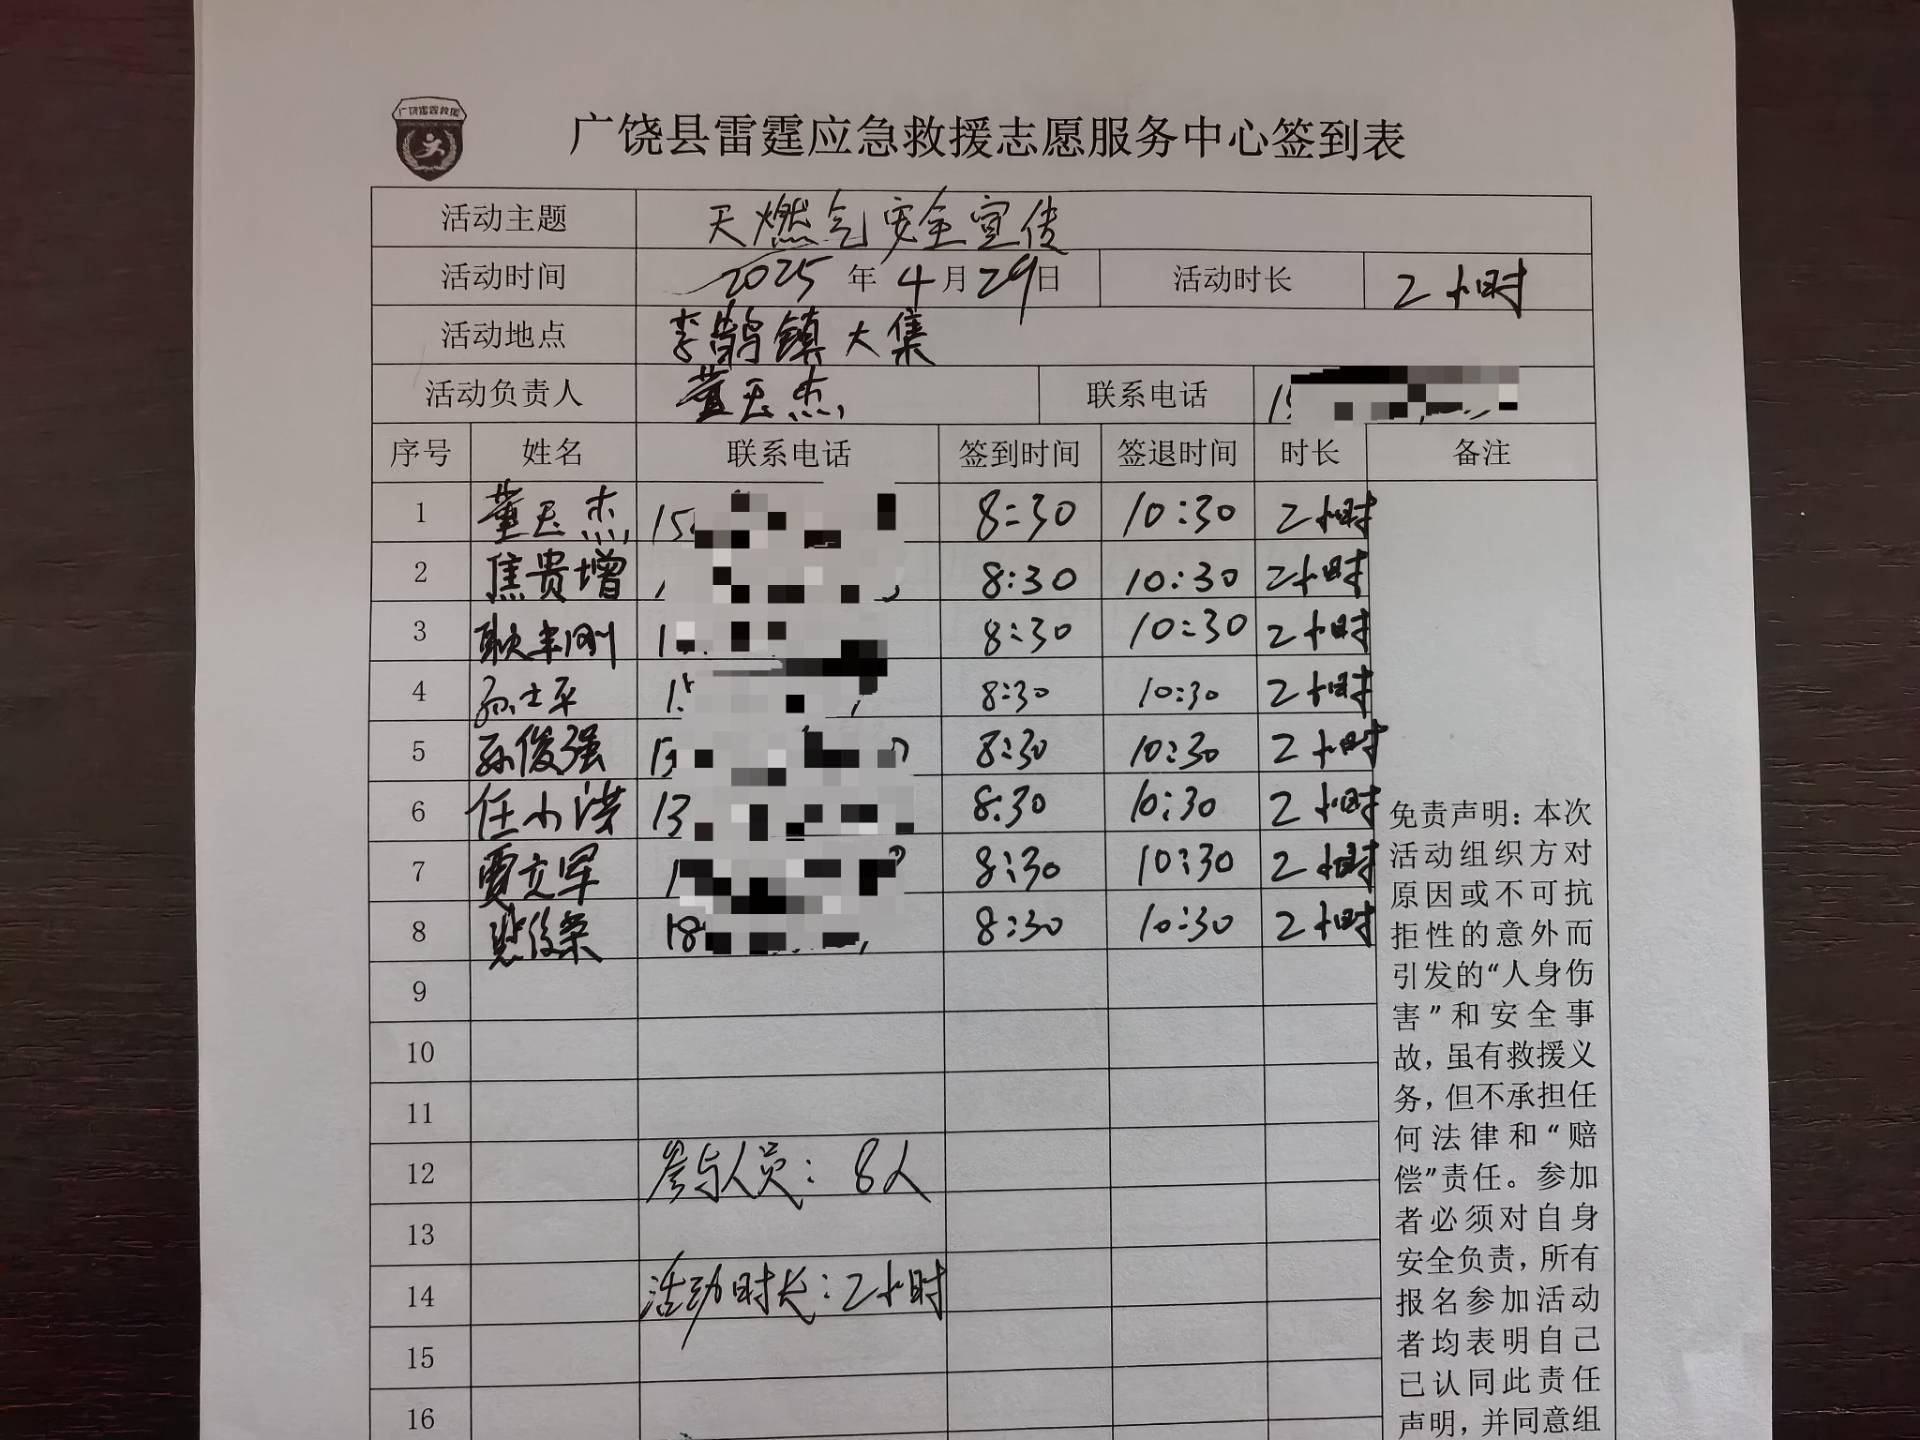 广饶雷霆救援
广饶县雷霆应急救援志愿服务中心签到表
活动主题 天燃气安全宣传
活动时间 2025年4月29日 活动时长 2小时
活动地点 李鹊镇大集
活动负责人 董玉杰 联系电话
序号 姓名 联系电话 签到时间 签退时间 时长 备注
1 董玉杰 15 8:30 10:30 2小时
2 焦贵增 8:30 10:30 2小时
3 耿丰刚 1 8:30 10:30 2小时
4 孙士平 1 8:30 10:30 2小时
5 孙俊强 15 8:30 10:30 2小时
6 任小洪 13 8:30 10:30 2小时
7 贾立军 1 8:30 10:30 2小时
8 18 8:30 10:30 2小时
9
10
11
12 参与人员：8人
13
14 活动时长：2小时
15
16
免责声明：本次
活动组织方对
原因或不可抗
拒性的意外而
引发的“人身伤
害”和安全事
故，虽有救援义
务，但不承担任
何法律和“赔
偿”责任。参加
者必须对自身
安全负责，所有
报名参加活动
者均表明自己
已认同此责任
声明，并同意组